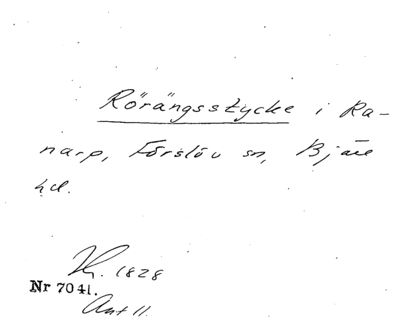 Rörängsstycke i Ra-
narp, Förslöv sn, Bjäre
hd.
Th. 1828
Nr 7041.
Ant 11.